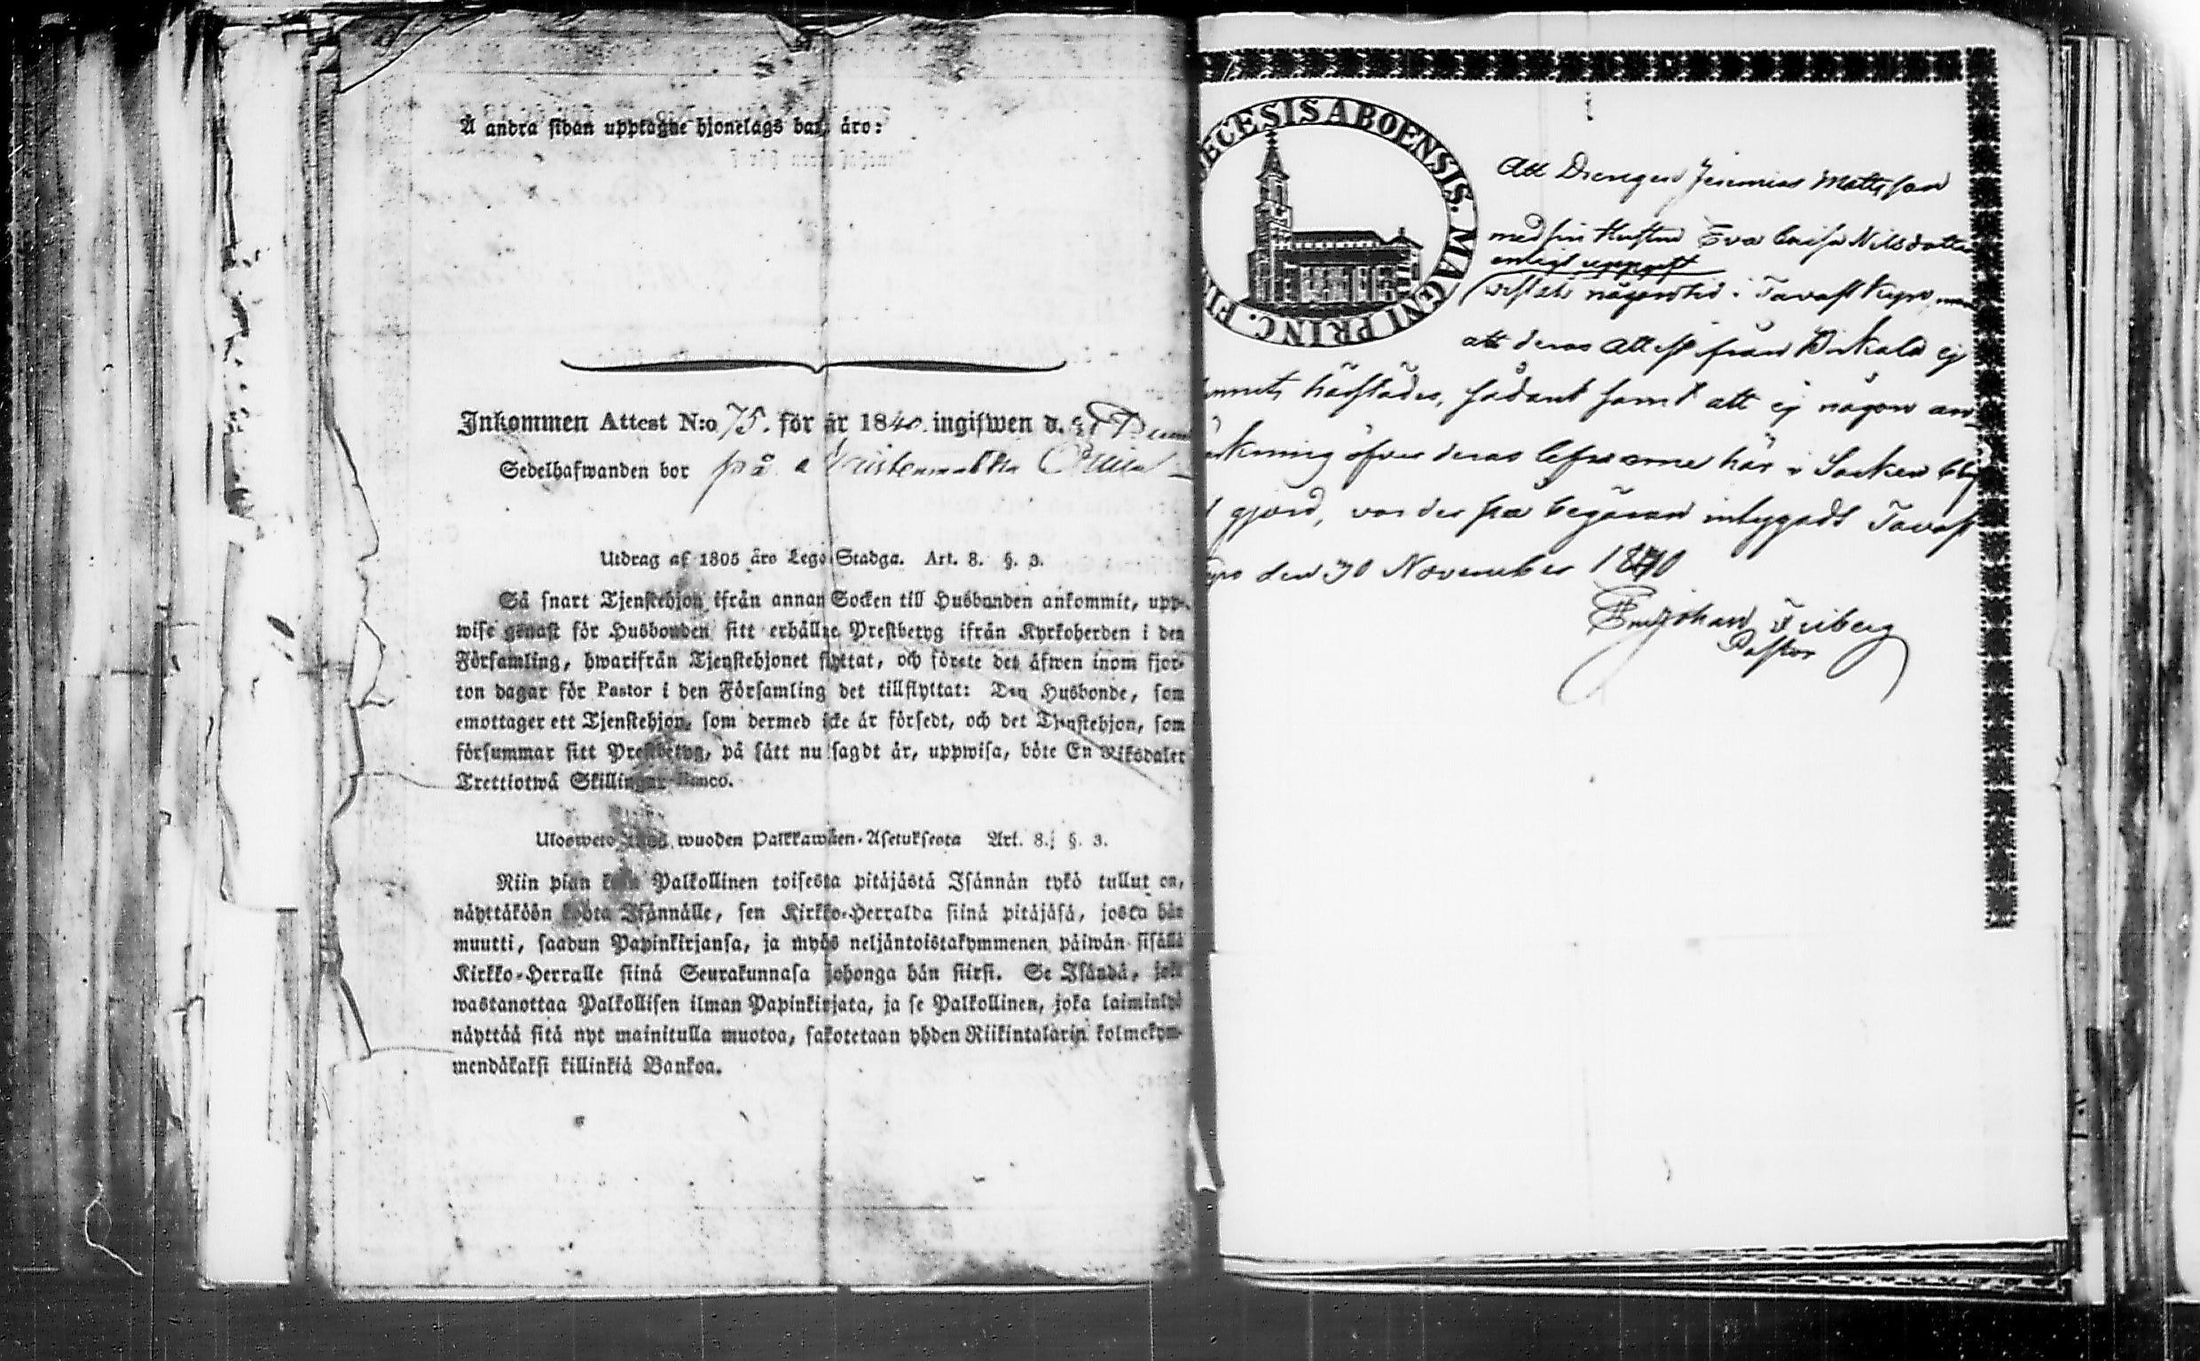 Å andra sidan upptagne hjonelags barn äro:
Inkommen Attest N:o 75. för år 1840. ingifwen d.
Sedelhafwanden bor på
Utdrag af 1805 års Lego-Stadga. Art. 8. §. 3.
Så snart Tjenstehjon ifrån annan Socken till Husbonden ankommit, upp-
wise genast för Husbonden sitt erhållne Prestbetyg ifrån Kyrkoherden i den
Församling, hwarifrån Tjenstehjonet flyttat, och förete det äfwen inom fjor-
ton dagar för Pastor i den Församling det tillflyttat: Den Husbonde, som
emottager ett Tjenstehjon, som dermed icke är försedt, och det Tjenstehjon, som
försummar sitt Prestbetyg, på sätt nu sagdt är, uppwisa, böte En Riksdaler
Trettiotwå Skillingar Banco.
Ulosweto wuoden Palkkawäen-Asetuksesta Art. 8. §. 3.
Niin pian kuin Palkollinen toisesta pitäjästä Isännän tykö tullut on,
näyttäköön kohta Isännälle, sen Kirkko-Herralda siinä pitäjäsä, josta hän
muutti, saadun Papinkirjansa, ja myös neljäntoistakymmenen päiwän sisällä
Kirkko-Herralle siinä Seurakunnasa johonga hän siirsi. Se Isändä, joka
wastanottaa Palkollisen ilman Papinkirjata, ja se Palkollinen, joka laiminlyö
näyttää sitä nyt mainitulla muotoa, sakotetaan yhden Riikintalarin kolmekym-
mendäkaksi killinkiä Bankoa.
ECESIS ABOENSIS. MAGNI PRINC. FI
Att Drengen Jeremias Mattsson
med sin Hustru Eva Caisa Nilsdotter
enligt uppgift
vistats någon tid i Tavast Kyro, men
att deras attest från Birkala ej
härstädes, sådant samt att ej någon an-
öfver deras lefverne här i Socken blif
gjord, varder på begäran intygadt Tavast
den 30 November 1840
Johan Friberg
Pastor